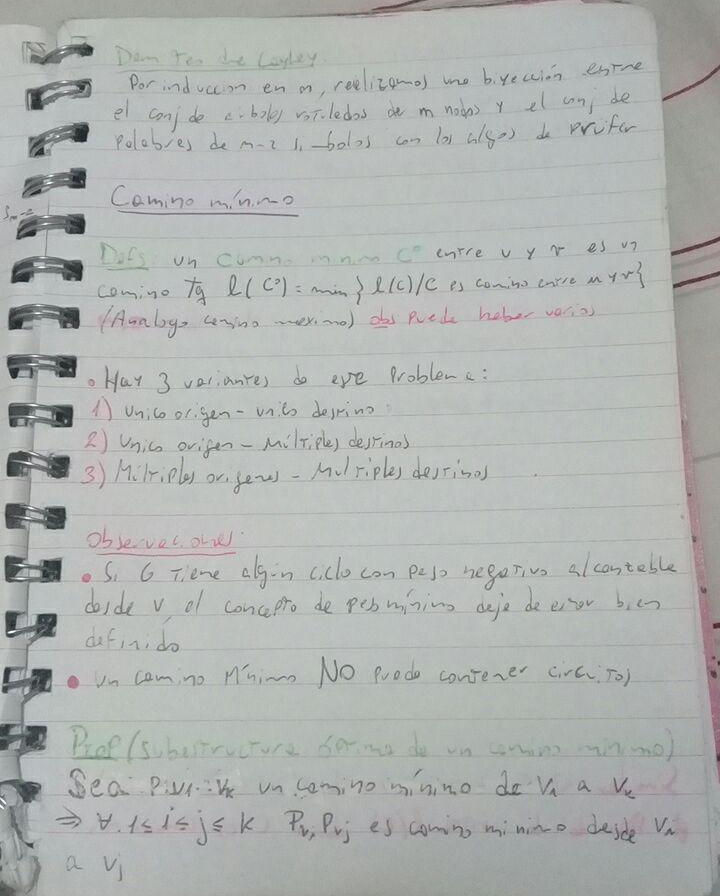 Dem Teo de Cayley.
Por induccion en m, realizamos una biyección entre
el conj de arboles rotulados de m nodos y el conj de
Palabras de m-2 simbolos con los algos de Prüfer
Camino mínimo
Defs: un camino minimo C° entre u y v es un
camino Tq l(C°) = min { l(C)/C es camino entre u y v}
(Analogo camino maximo) obs Puede haber varios
• Hay 3 variantes de este Problema:
1) Unico origen - unico destino
2) Unico origen - Múltiples destinos
3) Múltiples origenes - Multiples destinos
Observaciones:
• Si G Tiene algún ciclo con peso negativo alcanzable
desde v, el concepto de peso mínimo deja de estar bien
definido
• Un camino Mínimo NO Puede contener circuitos
Prop (Subestructura óptima de un camino minimo)
Sea P:v1...vk un camino mínimo de V1 a Vk
⇒ ∀ 1≤i≤j≤k Pvi Pvj es camino minimo desde Vi
a Vj